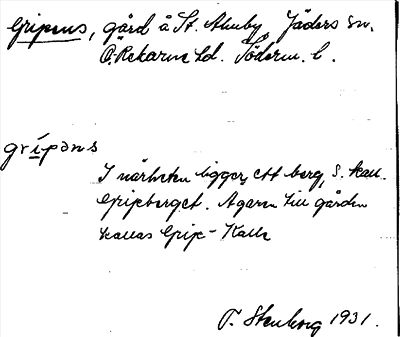 Gripens, gård å St. Åhnby, Jäders sn.
Ö. Rekarne hd. Söderm. l.
grípəns
I närheten ligger ett berg, s. kall.
Gripberget. Ägaren till gården
kallas Grip-Kalle
P. Stenborg 1931.